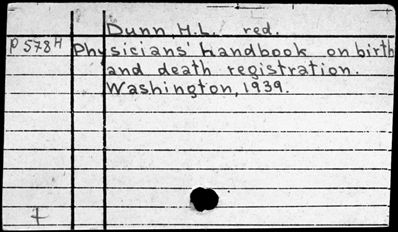 Dunn, H.L. red.
P 5784 Physicians' handbook on birth
and death registration.
Washington, 1939.